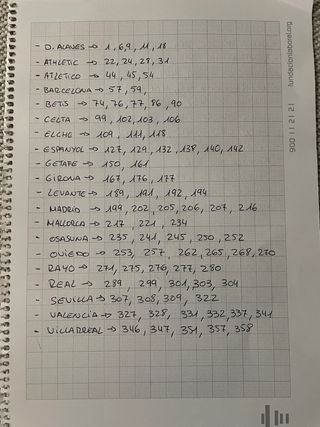 - D. ALAVES → 1, 6, 9, 11, 18
- ATHLETIC → 22, 24, 28, 31
- ATLETICO → 44, 45, 54
- BARCELONA → 57, 59,
- BETIS → 74, 76, 77, 86, 90
- CELTA → 99, 102, 103, 106
- ELCHE → 109, 111, 118
- ESPANYOL → 127, 129, 132, 138, 140, 142
- GETAFE → 150, 161
- GIRONA → 167, 176, 177
- LEVANTE → 189, 191, 192, 194
- MADRID → 199, 202, 205, 206, 207, 216
- MALLORCA → 217, 221, 234
- OSASUNA → 235, 241, 245, 250, 252
- OVIEDO → 253, 257, 262, 265, 268, 270
- RAYO → 271, 275, 276, 277, 280
- REAL → 289, 299, 301, 303, 304
- SEVILLA → 307, 308, 309, 322
- VALENCIA → 327, 328, 331, 332, 337, 341
- VILLARREAL → 346, 347, 351, 357, 358
900 11 21 21 fundacionlaboral.org